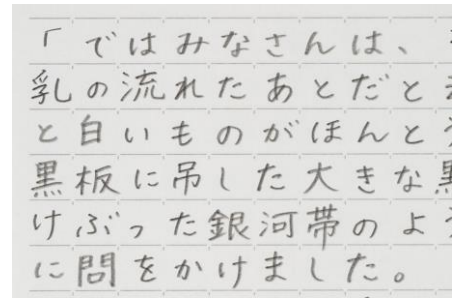 「ではみなさんは、
乳の流れたあとだと
と白いものがほんと
黒板に吊した大きな黒
けぶった銀河帯のよう
に問をかけました。